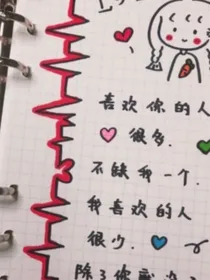 喜欢你的人
很多.
不缺我一个.
我喜欢的人
很少.
除了你就没